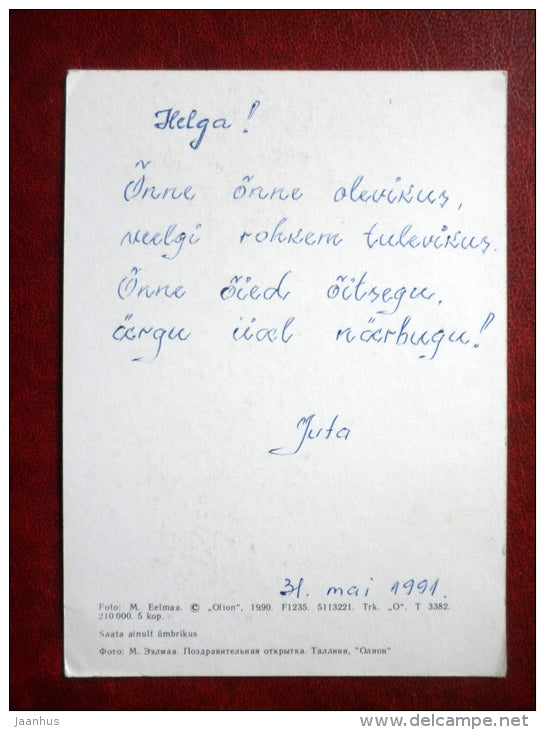 Helga!
Õnne õnne olevikus,
veelgi rohkem tulevikus.
Õnne õied õitsegu,
ärgu iial närbugu!
Juta
31. mai 1991.
Foto: M. Eelmaa. © „Olion“, 1990. F1235. 5113221. Trk. „O“. T 3382.
210 000. 5 kop.
Saata ainult ümbrikus
Фото: М. Ээлмаа. Поздравительная открытка. Таллинн, "Олион"
© jaanhus
www.delcampe.net